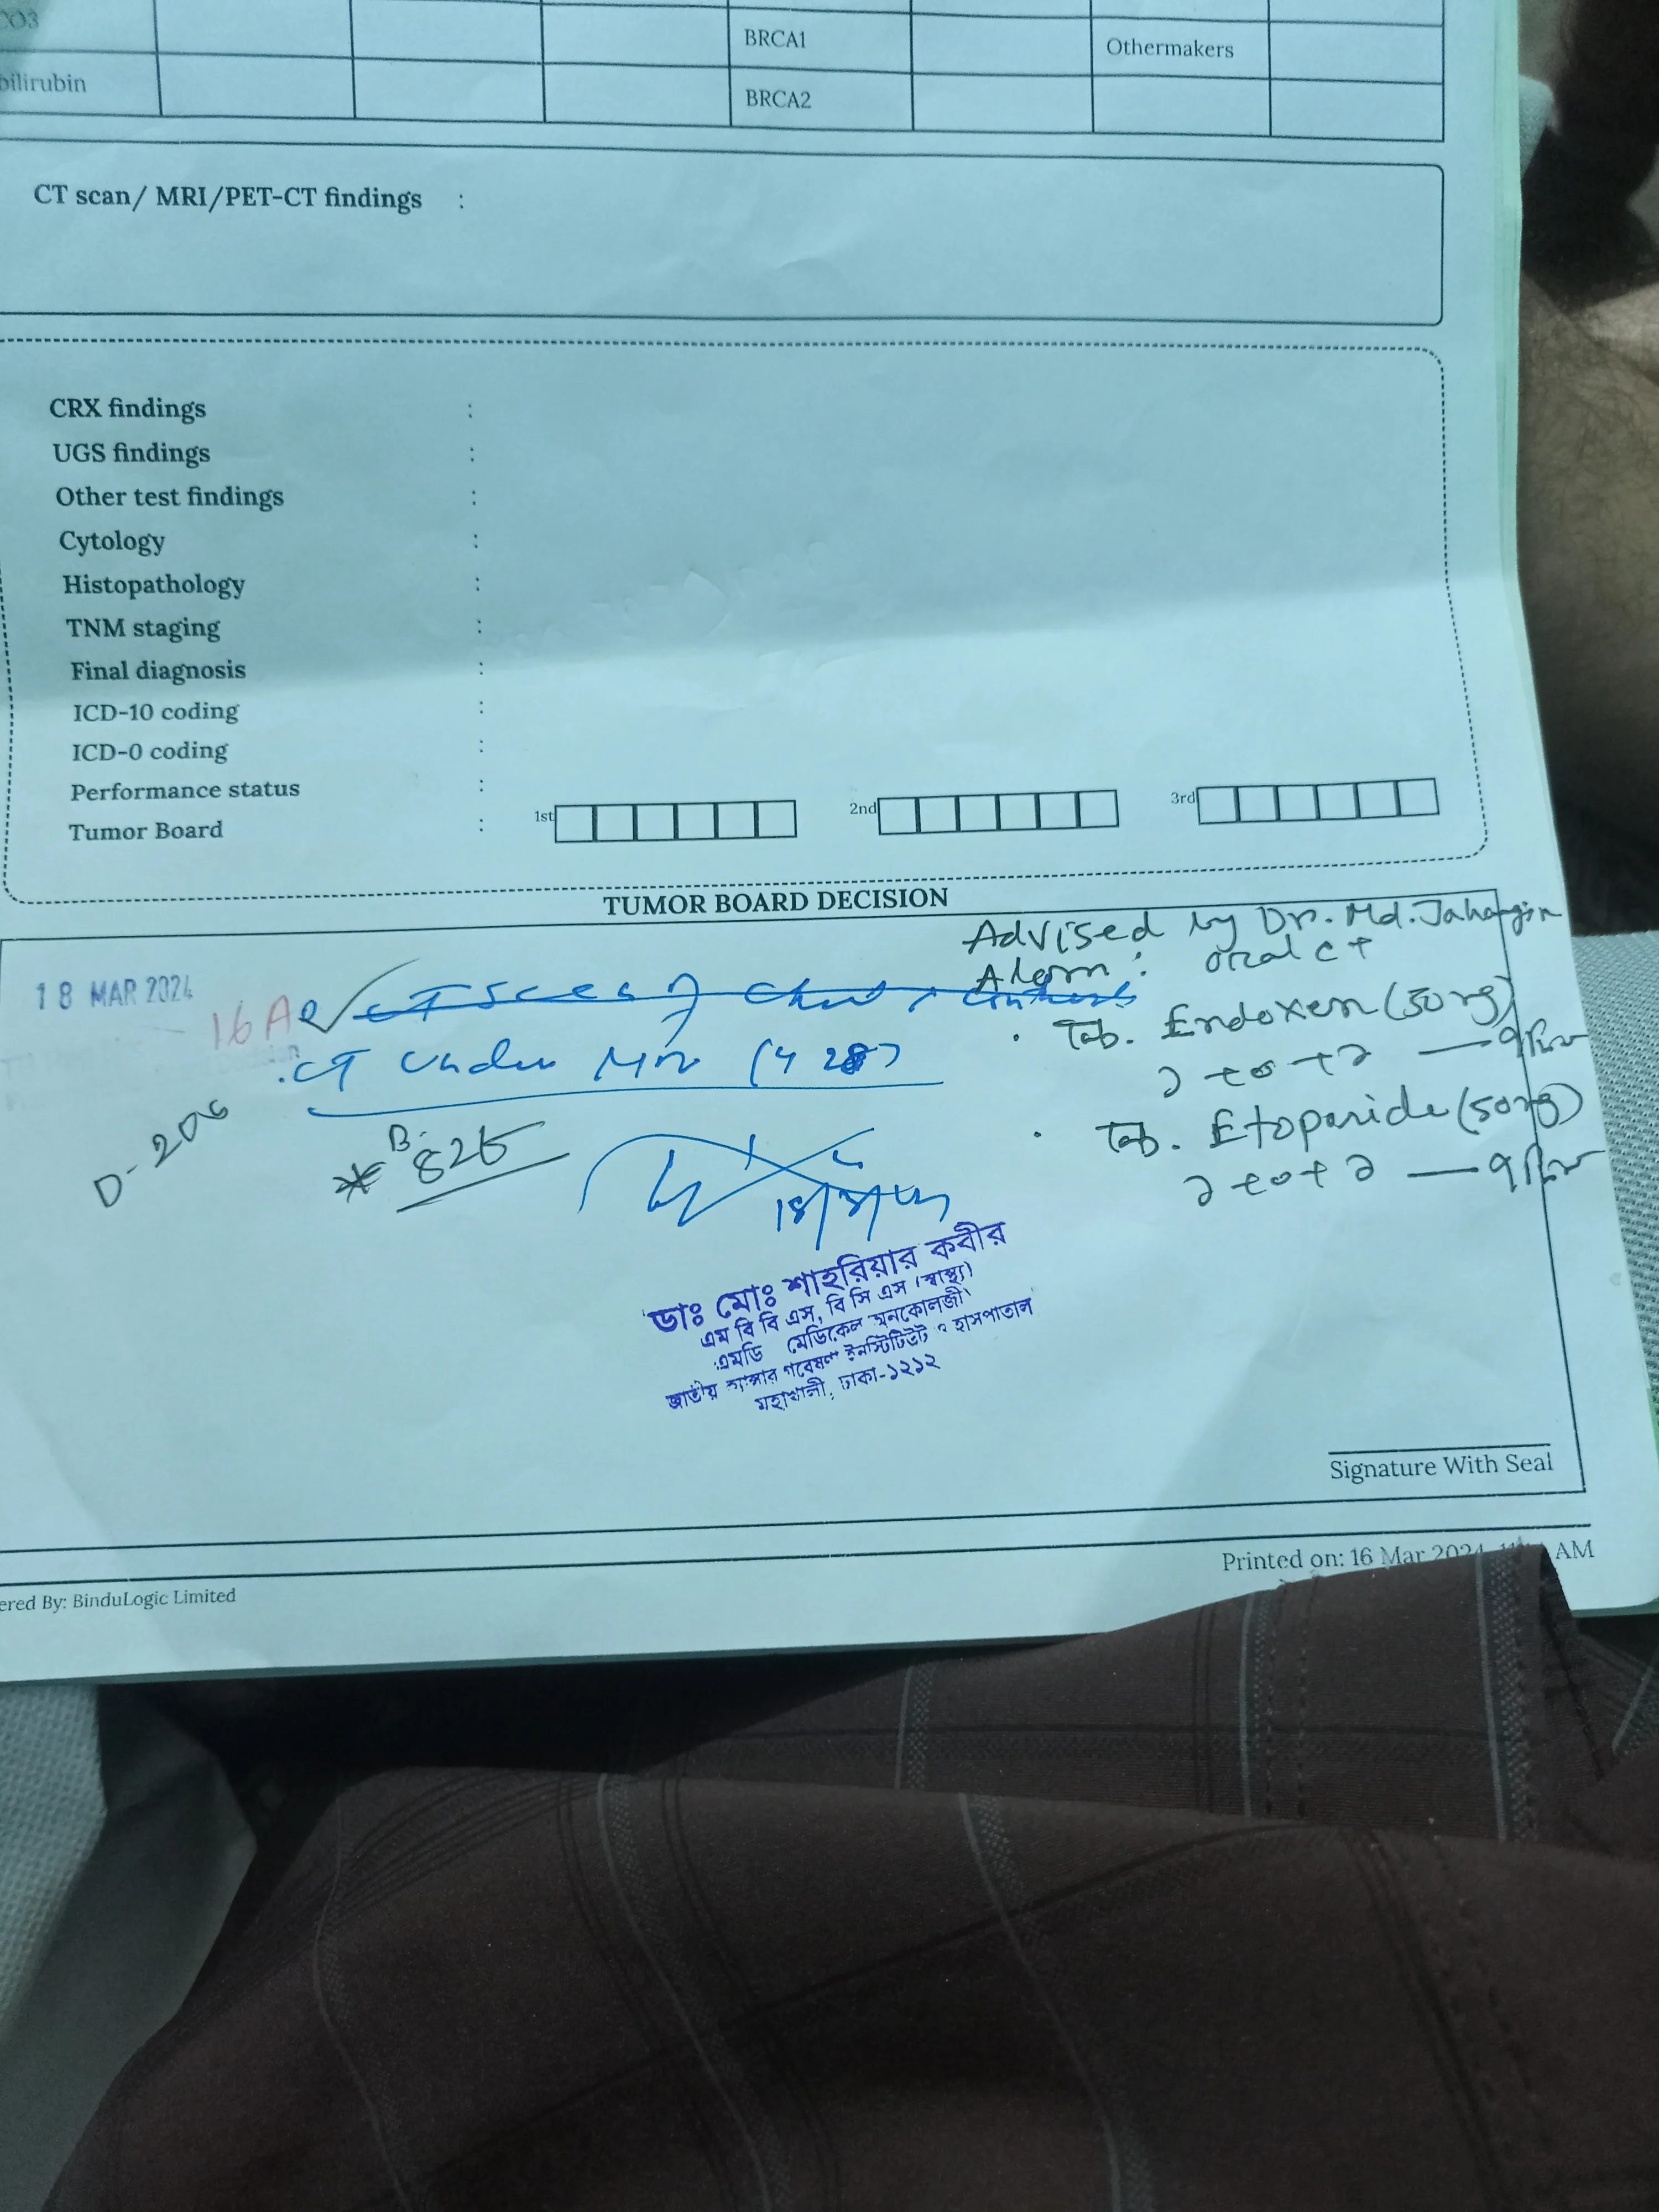 CO3 BRCA1 Othermakers
bilirubin BRCA2
CT scan/ MRI/PET-CT findings :
CRX findings :
UGS findings :
Other test findings :
Cytology :
Histopathology :
TNM staging :
Final diagnosis :
ICD-10 coding :
ICD-0 coding :
Performance status :
Tumor Board : 1st 2nd 3rd
TUMOR BOARD DECISION
Advised by Dr. Md. Jahangir
Alam : oral CT
18 MAR 2024
16 A
CT under
D-206
* B- 825
Tab. Endoxen (50mg)
১+০+১ —
Tab. Etoposide (50mg)
১+০+১ —
ডাঃ মোঃ শাহরিয়ার কবীর
এম বি বি এস, বি সি এস (স্বাস্থ্য)
এমডি মেডিকেল অনকোলজী
জাতীয় ক্যান্সার গবেষণা ইনস্টিটিউট ও হাসপাতাল
মহাখালী, ঢাকা-১২১২
Signature With Seal
Printed on: 16 Mar 2024 AM
ered By: BinduLogic Limited